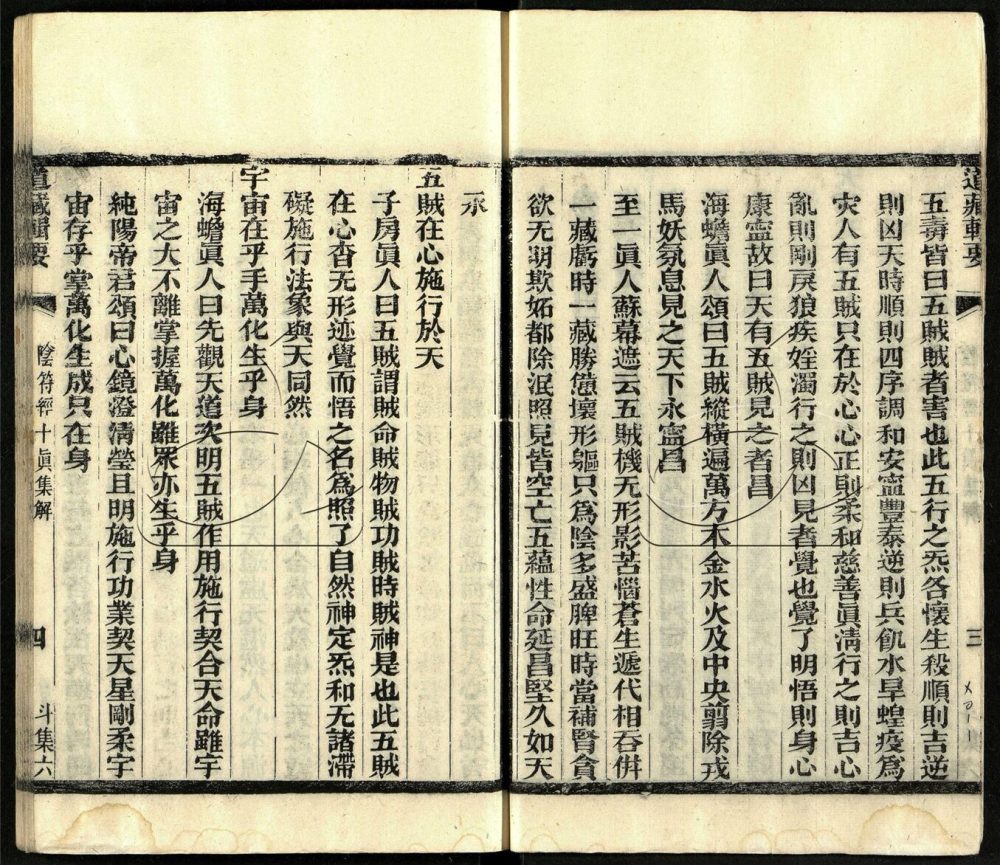 道藏輯要
三
五毒皆曰五賊賊者害也此五行之炁各懷生殺順則吉逆
則凶天時順則四序調和安寍豐泰逆則兵飢水旱蝗疫為
灾人有五賊只在於心心正則柔和慈善眞淸行之則吉心
亂則剛戾狼疾婬濁行之則凶見者覺也覺了明悟則身心
康寍故曰天有五賊見之者昌
海蟾眞人頌曰五賊縱橫遍萬方木金水火及中央翦除戎
馬妖氛息見之天下永寍昌
至一眞人蘇幕遮云五賊機无形影苦惱蒼生遞代相吞併
一藏虧時一藏勝憊壞形軀只為陰多盛脾旺時當補腎貪
欲无明欺妬都除泯照見皆空亡五蘊性命延昌堅久如天
永
五賊在心施行於天
子房眞人曰五賊謂賊命賊物賊功賊時賊神是也此五賊
在心杳无形迹覺而悟之名為照了自然神定炁和无諸滯
礙施行法象與天同然
宇宙在乎手萬化生乎身
海蟾眞人曰先觀天道次明五賊作用施行契合天命雖宇
宙之大不離掌握萬化雖眾亦生乎身
純陽帝君頌曰心鏡澄淸瑩且明施行功業契天星剛柔宇
宙存乎掌萬化生成只在身
道藏輯要
陰符經十眞集解
四
斗集六